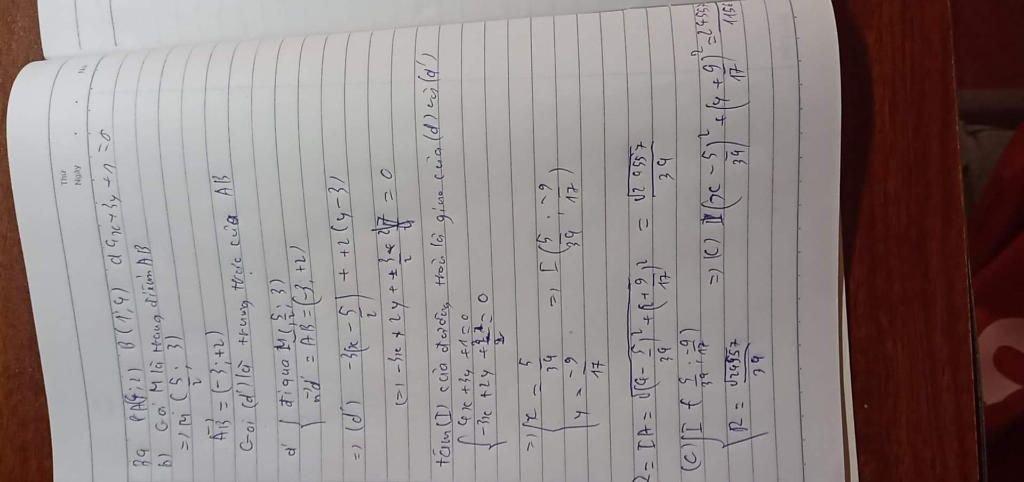 Thứ
Ngày
No.
B(1;4) d 4x+3y+1=0
b) Gọi M là trung điểm AB
=) M (5/2; 3)
AB = (-3;+2)
Gọi (d') là trung trực của AB
d' { đi qua M(5/2; 3)
n d' = AB = (-3,+2)
=) (d') -3(x-5/2) + +2(y-3)
= 0
tâm (I) của đường tròn là giao của (d) và (d')
{ 4x+3y+1=0
-3x+2y+
= 0
=) { x = 5/34
y = -9/17
=) I (5/34; -9/17)
R = IA = √(4-5/34)²+(2+9/17)² = √24957/34
(C) { I (5/34; -9/17)
R = √24957/34
=) (C) (x-5/34)² + (y+9/17)² = 24957/1156